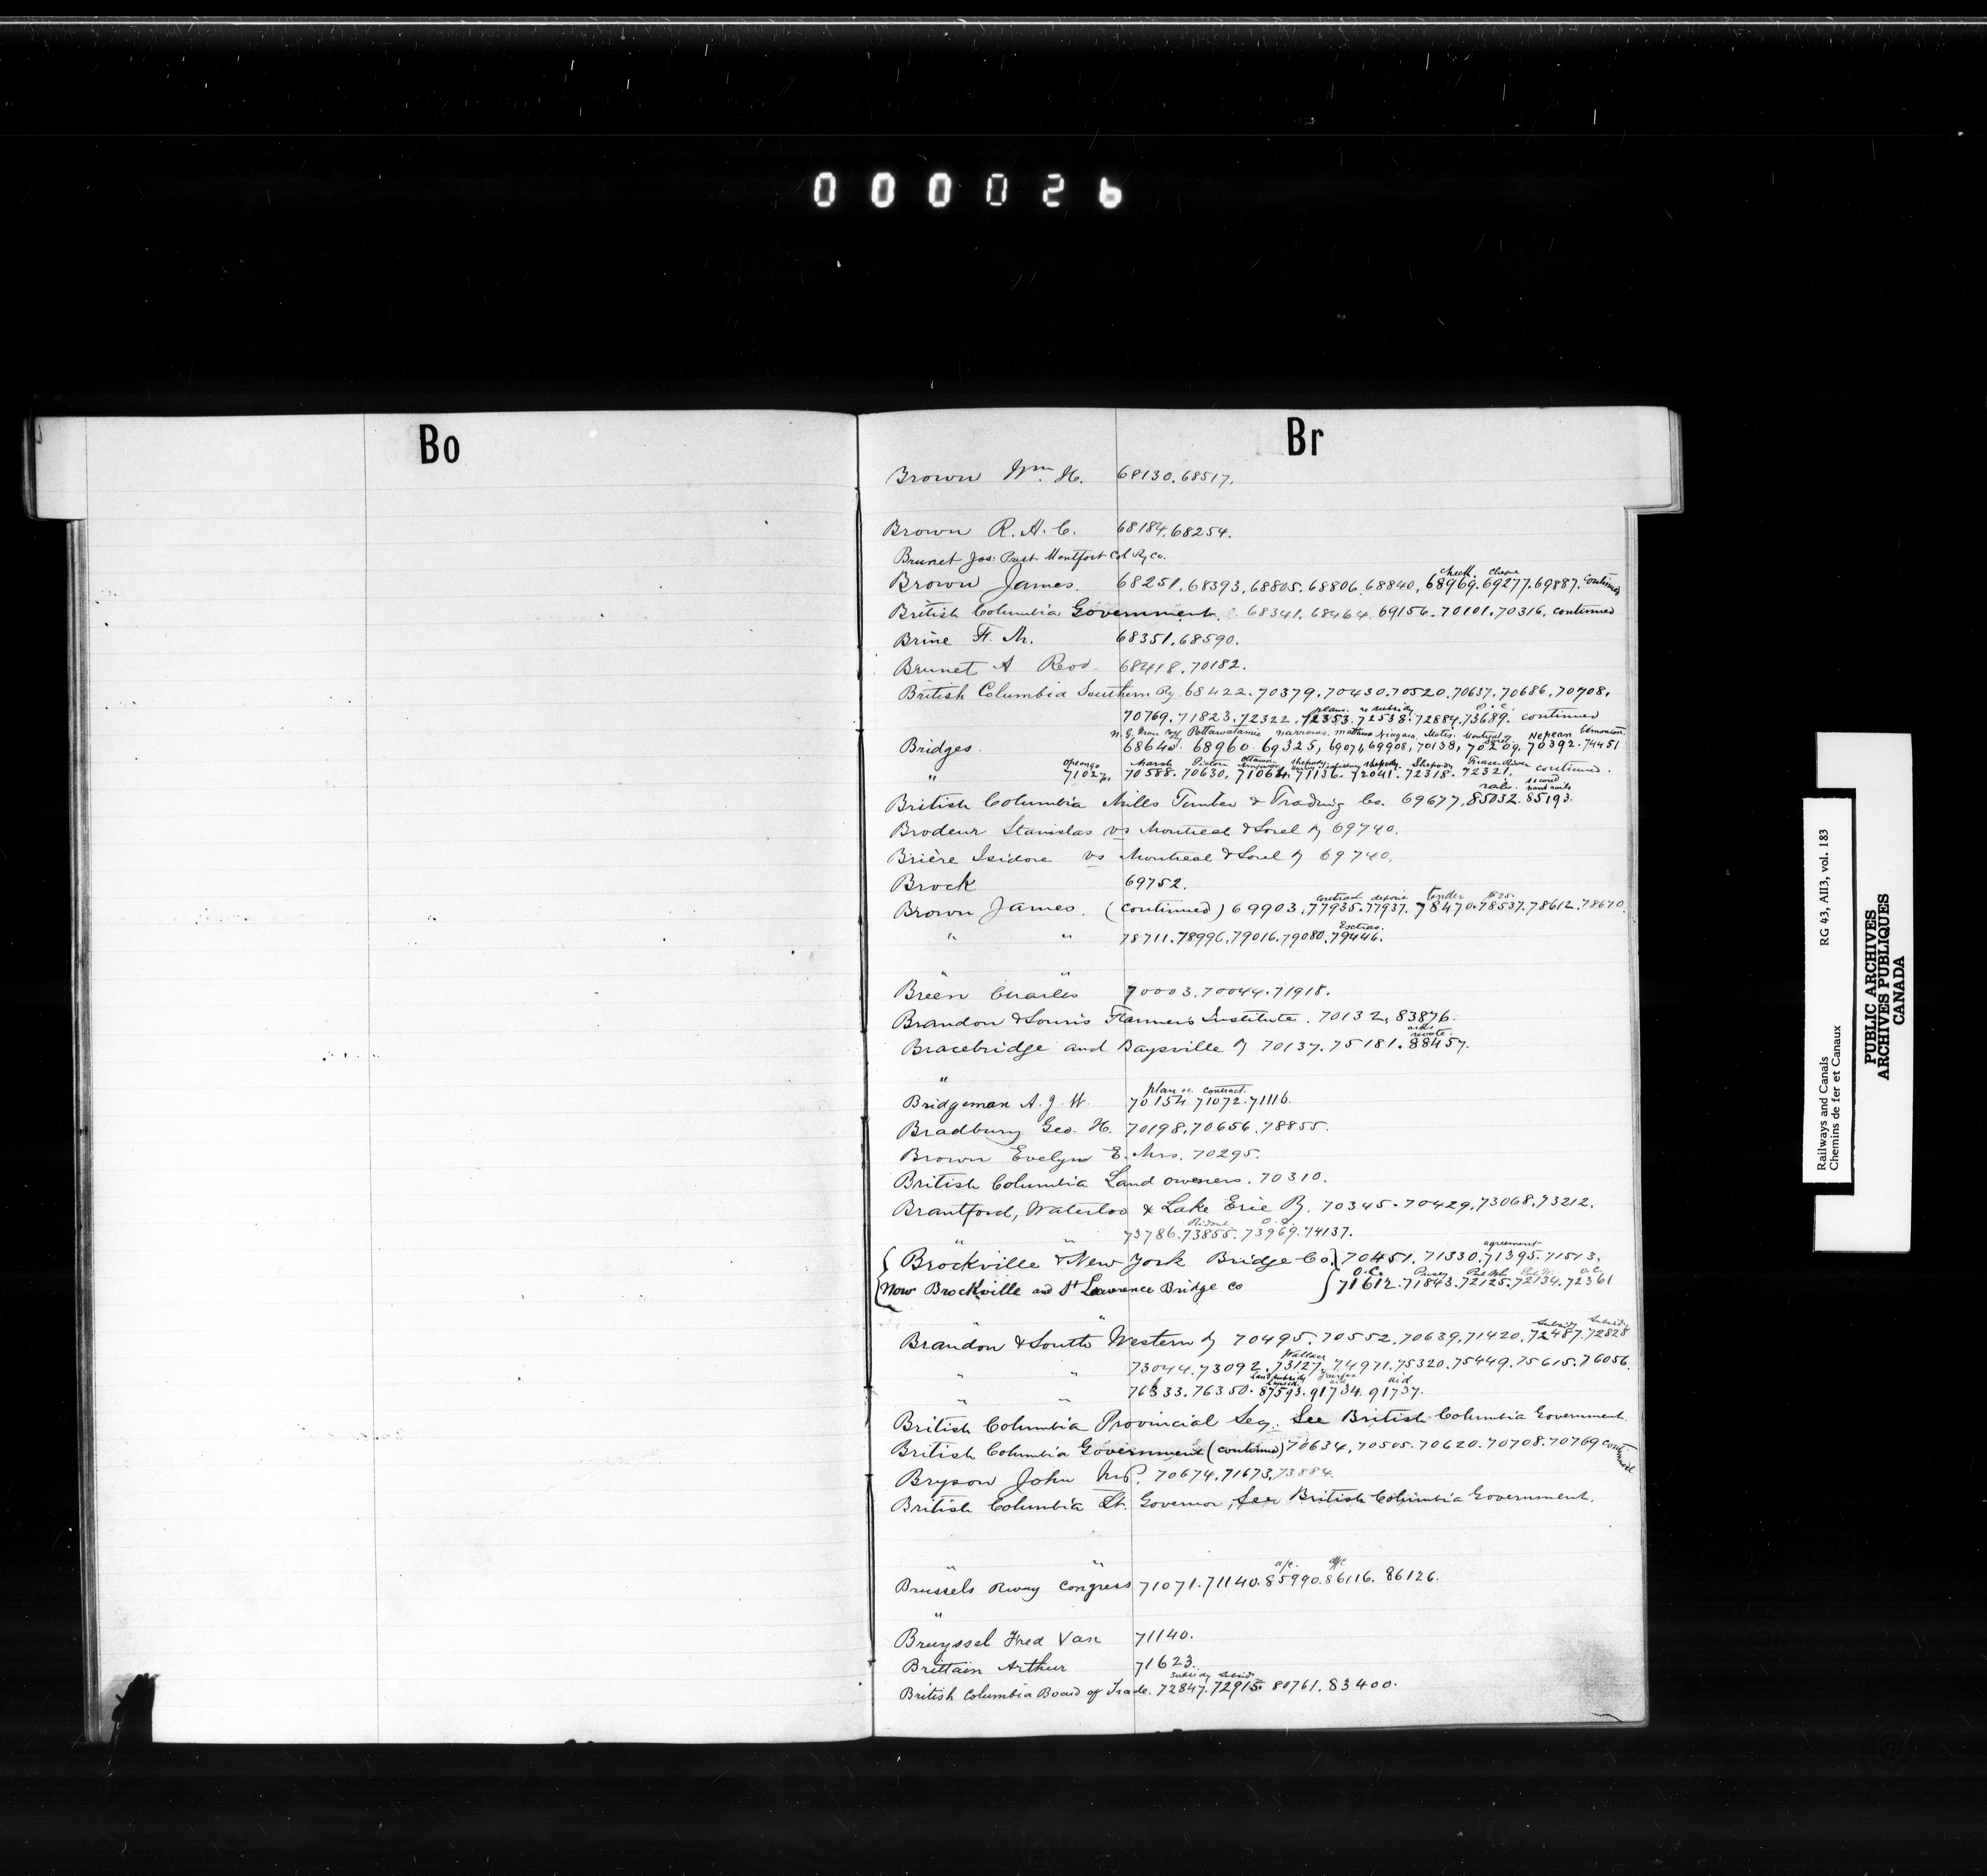 000026
Bo
Br
Brown Wm. H. 68130. 68517.
Brown R. A. C. 68184. 68254.
Brunet Jos: Prest. Montfort Col Ry Co.
check. cheque
Brown James 68251. 68393. 68805. 68806. 68840. 68969. 69277. 69887. continued
British Columbia Government. 68341. 68464. 69156. 70101. 70316. continued
Brine H. M. 68351. 68590.
Brunet A Rod 68418. 70182.
British Columbia Southern Ry. 68422. 70379. 70430. 70520. 70637. 70686. 70708.
plans. re subsidy O.C.
70769. 71823. 72322. 72353. 72538. 72884. 73689. continued
Pottawatamie narrows. mattawa Niagara. Metis. Montreal & Sorel Nepean Edmonton
Bridges. 68640. 68960. 69325, 69071, 69908, 70138, 70209. 70392. 74451
opeongo Marsh Picton Ottawa shepody. Shepody Fraser River
" 71027, 70588. 70630, 71064, 71136. 72041. 72318. 72321. continued.
rails. second hand rails
British Columbia Mills Timber & Trading Co. 69677, 85032. 85193.
Brodeur Stanislas vs Montreal & Sorel Ry 69740.
Brière Isidore vs Montreal & Sorel Ry 69740.
Brock 69752.
contract deposit tender
Brown James. (continued) 69903. 77935. 77937. 78470. 78537. 78612. 78670.
Extras.
" " 78711. 78996. 79016. 79080. 79446.
" "
Breen Charles 70003. 70044. 71918.
Brandon & Souris Farmer's Institute. 70132, 83876.
asks revote.
Bracebridge and Baysville Ry 70137. 75181. 88457.
"
plan &c. contract.
Bridgeman A. J. W. 70154 71072. 71116.
Bradbury Geo. H. 70198. 70656. 78855.
Brown Evelyn E. Mrs. 70295.
British Columbia Land owners. 70310.
Brantford, Waterloo & Lake Erie Ry. 70345. 70429. 73068. 73212.
O.C.
" " 73786. 73855. 73969. 74137.
agreement
Brockville & New York Bridge Co. 70451. 71330. 71395. 71513.
O.C. O.C.
Now Brockville and St Lawrence Bridge Co 71612. 71843. 72125. 72134. 72361
" "
subsidy subsidy
Brandon & South Western Ry 70495. 70552. 70639. 71420. 72487. 72828
Wallace
" 73044. 73092. 73127. 74971. 75320. 75449. 75615. 76056.
Land subsidy lapsed. aid
" " 76333. 76350. 87593. 91734. 91737.
British Columbia Provincial Secy. See British Columbia Government.
British Columbia Government (continued) 70634, 70505. 70620. 70708. 70769 continued
Bryson John M.P. 70674. 71673. 73884.
British Columbia Lt. Governor, See British Columbia Government.
" "
a/c. a/c
Brussels Rway Congress 71071. 71140. 85990. 86116. 86126.
"
Bruyssel Fred Van 71140.
Brittain Arthur 71623.
subsidy subsidy
British Columbia Board of Trade. 72847. 72915. 80761. 83400.
Railways and Canals RG 43, AII3, vol. 183
Chemins de fer et Canaux
PUBLIC ARCHIVES
ARCHIVES PUBLIQUES
CANADA